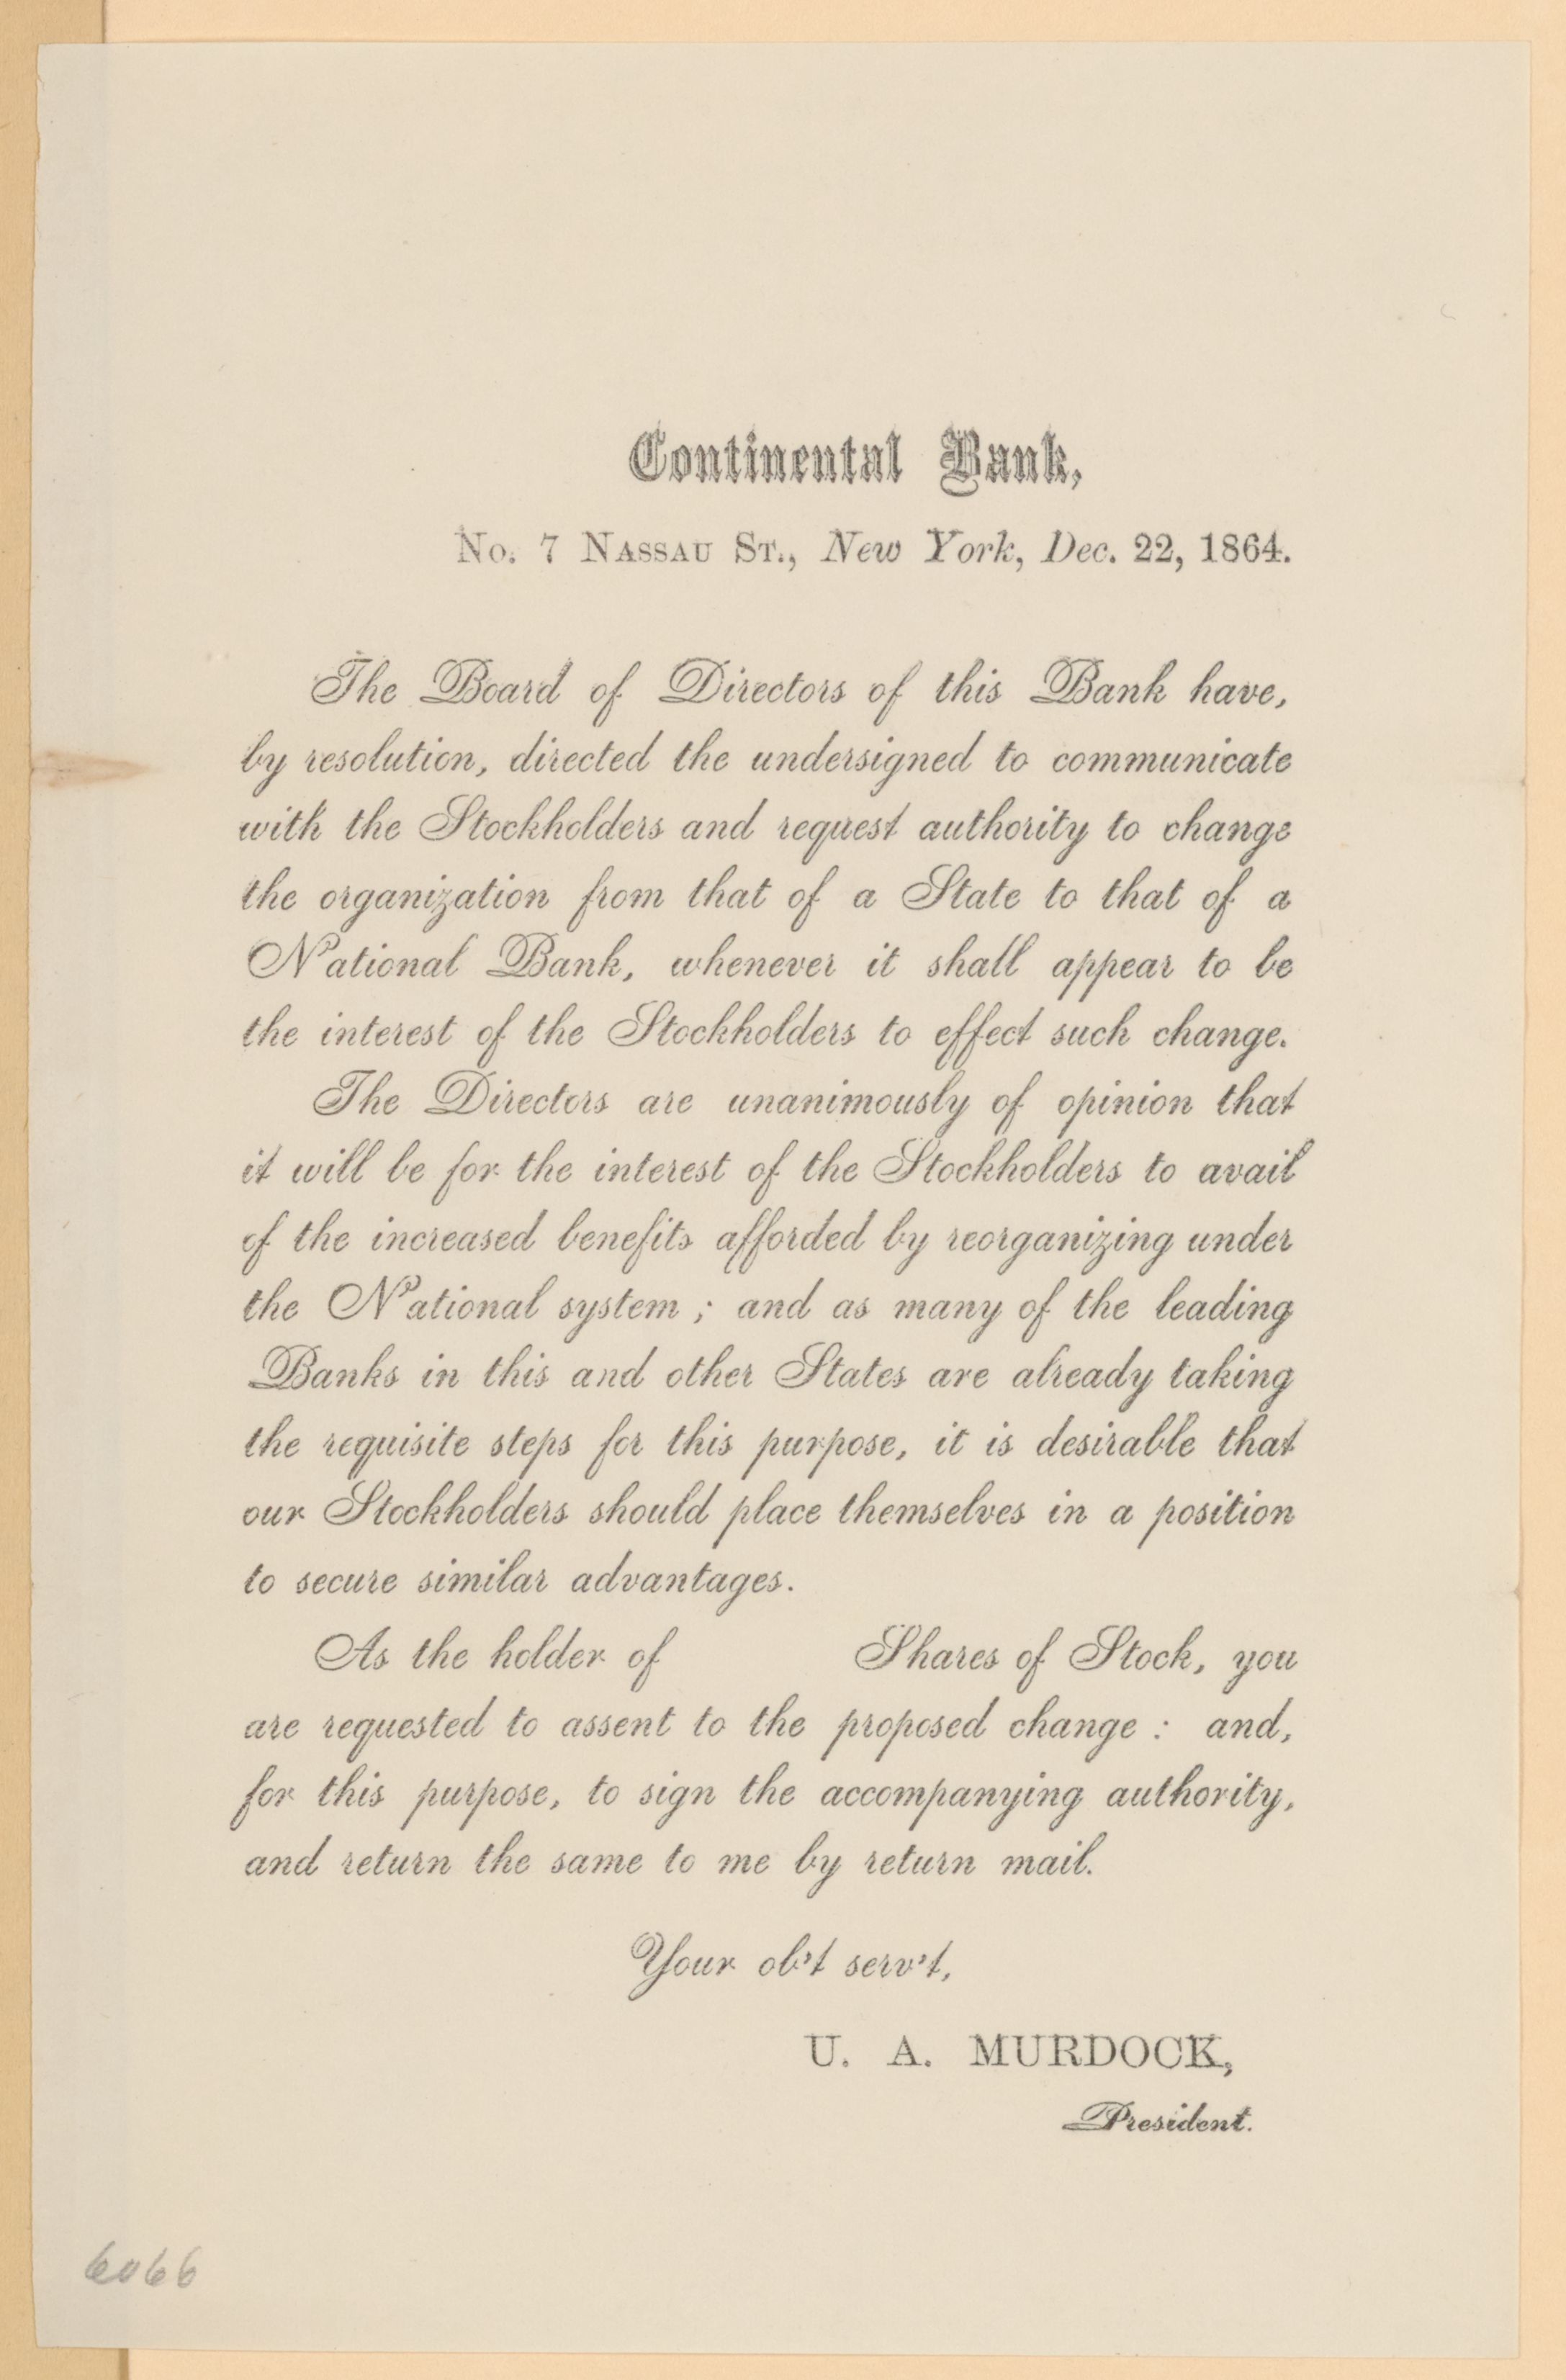 Continental Bank,
No. 7 Nassau St., New York, Dec. 22, 1864.
The Board of Directors of this Bank have,
by resolution, directed the undersigned to communicate
with the Stockholders and request authority to change
the organization from that of a State to that of a
National Bank, whenever it shall appear to be
the interest of the Stockholders to effect such change.
The Directors are unanimously of opinion that
it will be for the interest of the Stockholders to avail
of the increased benefits afforded by reorganizing under
the National system ; and as many of the leading
Banks in this and other States are already taking
the requisite steps for this purpose, it is desirable that
our Stockholders should place themselves in a position
to secure similar advantages.
As the holder of Shares of Stock, you
are requested to assent to the proposed change : and,
for this purpose, to sign the accompanying authority,
and return the same to me by return mail.
Your ob't serv't,
U. A. MURDOCK,
President.
6066